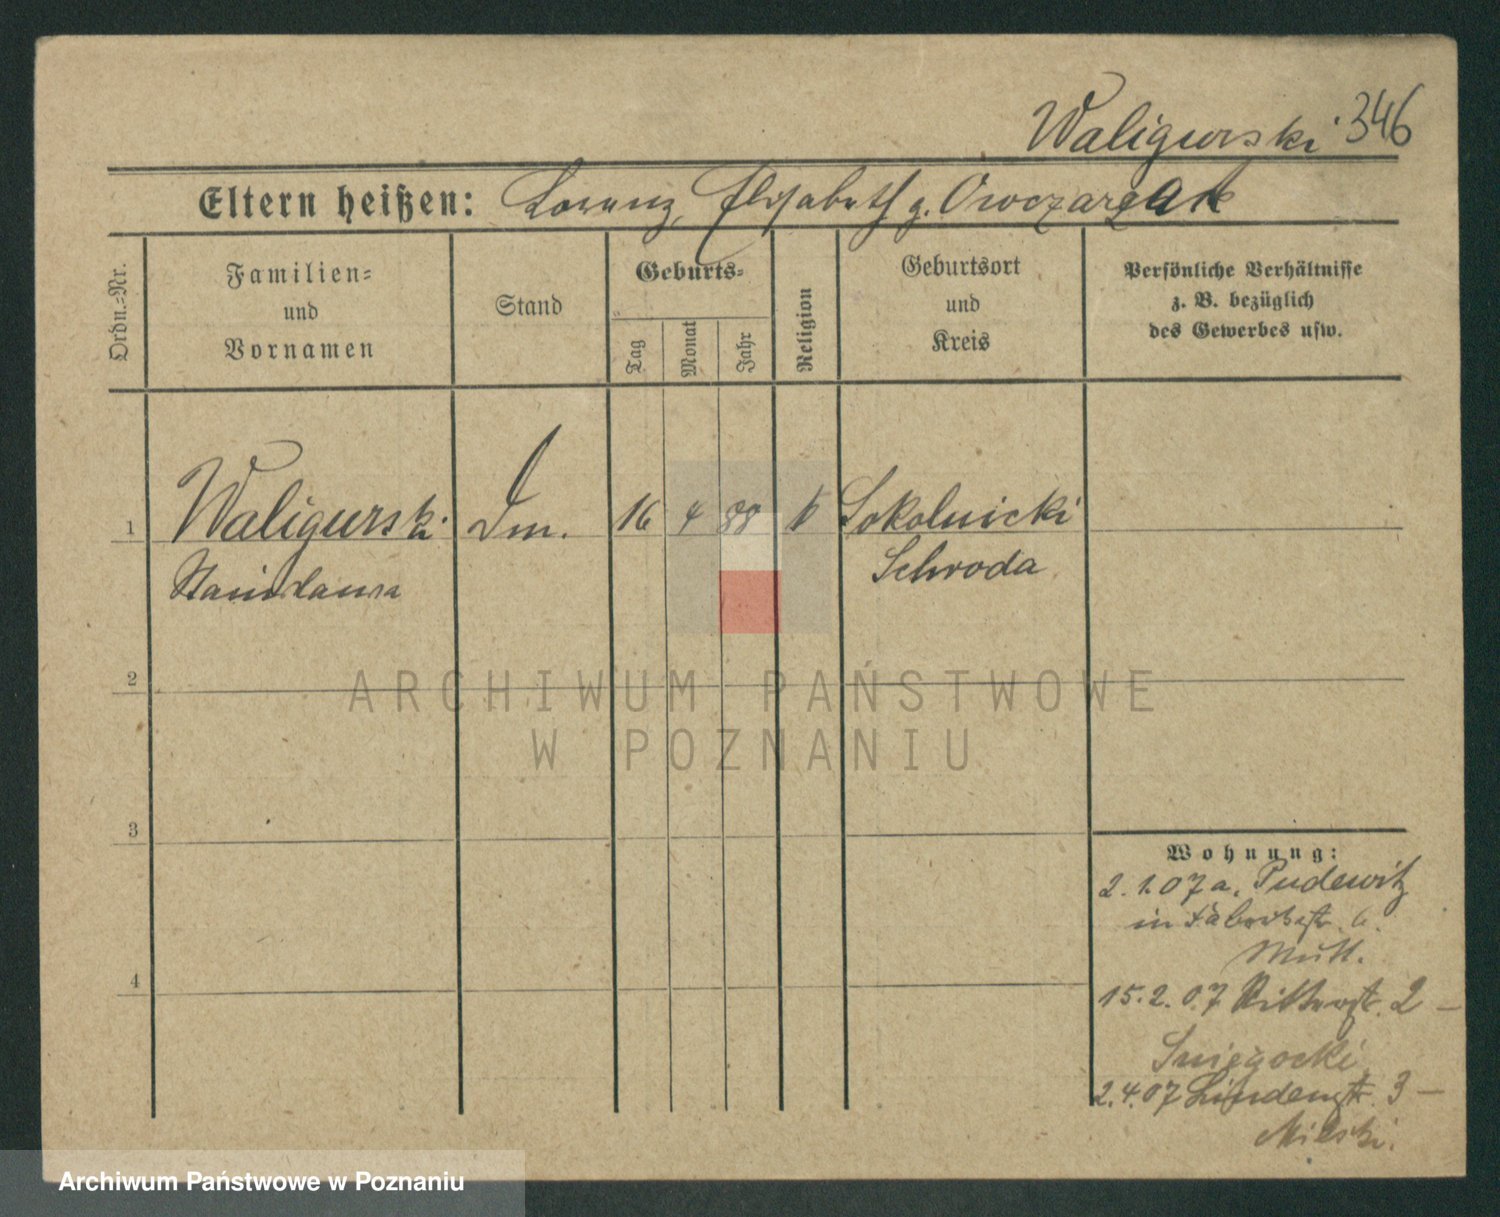 Waligurski 346
Eltern heißen: Lorenz, Elisabeth g. Owczarzak
Ordn.-Nr.
Familien-
und
Vornamen
Stand
Geburts-
Tag
Monat
Jahr
Religion
Geburtsort
und
Kreis
Persönliche Verhältnisse
z. B. bezüglich
des Gewerbes usw.
1
Waligurski
Stanislawa
Dm.
16 4 88 k
Sokolnicki
Schroda
2
3
4
Wohnung:
2.1.07 a. Pudewitz
in Fabrikstr. 6.
15.2.07 Ritterstr. 2 –
Sniegocki
2.4.07 Lindenstr. 3 –
Milski.
ARCHIWUM PAŃSTWOWE
W POZNANIU
Archiwum Państwowe w Poznaniu